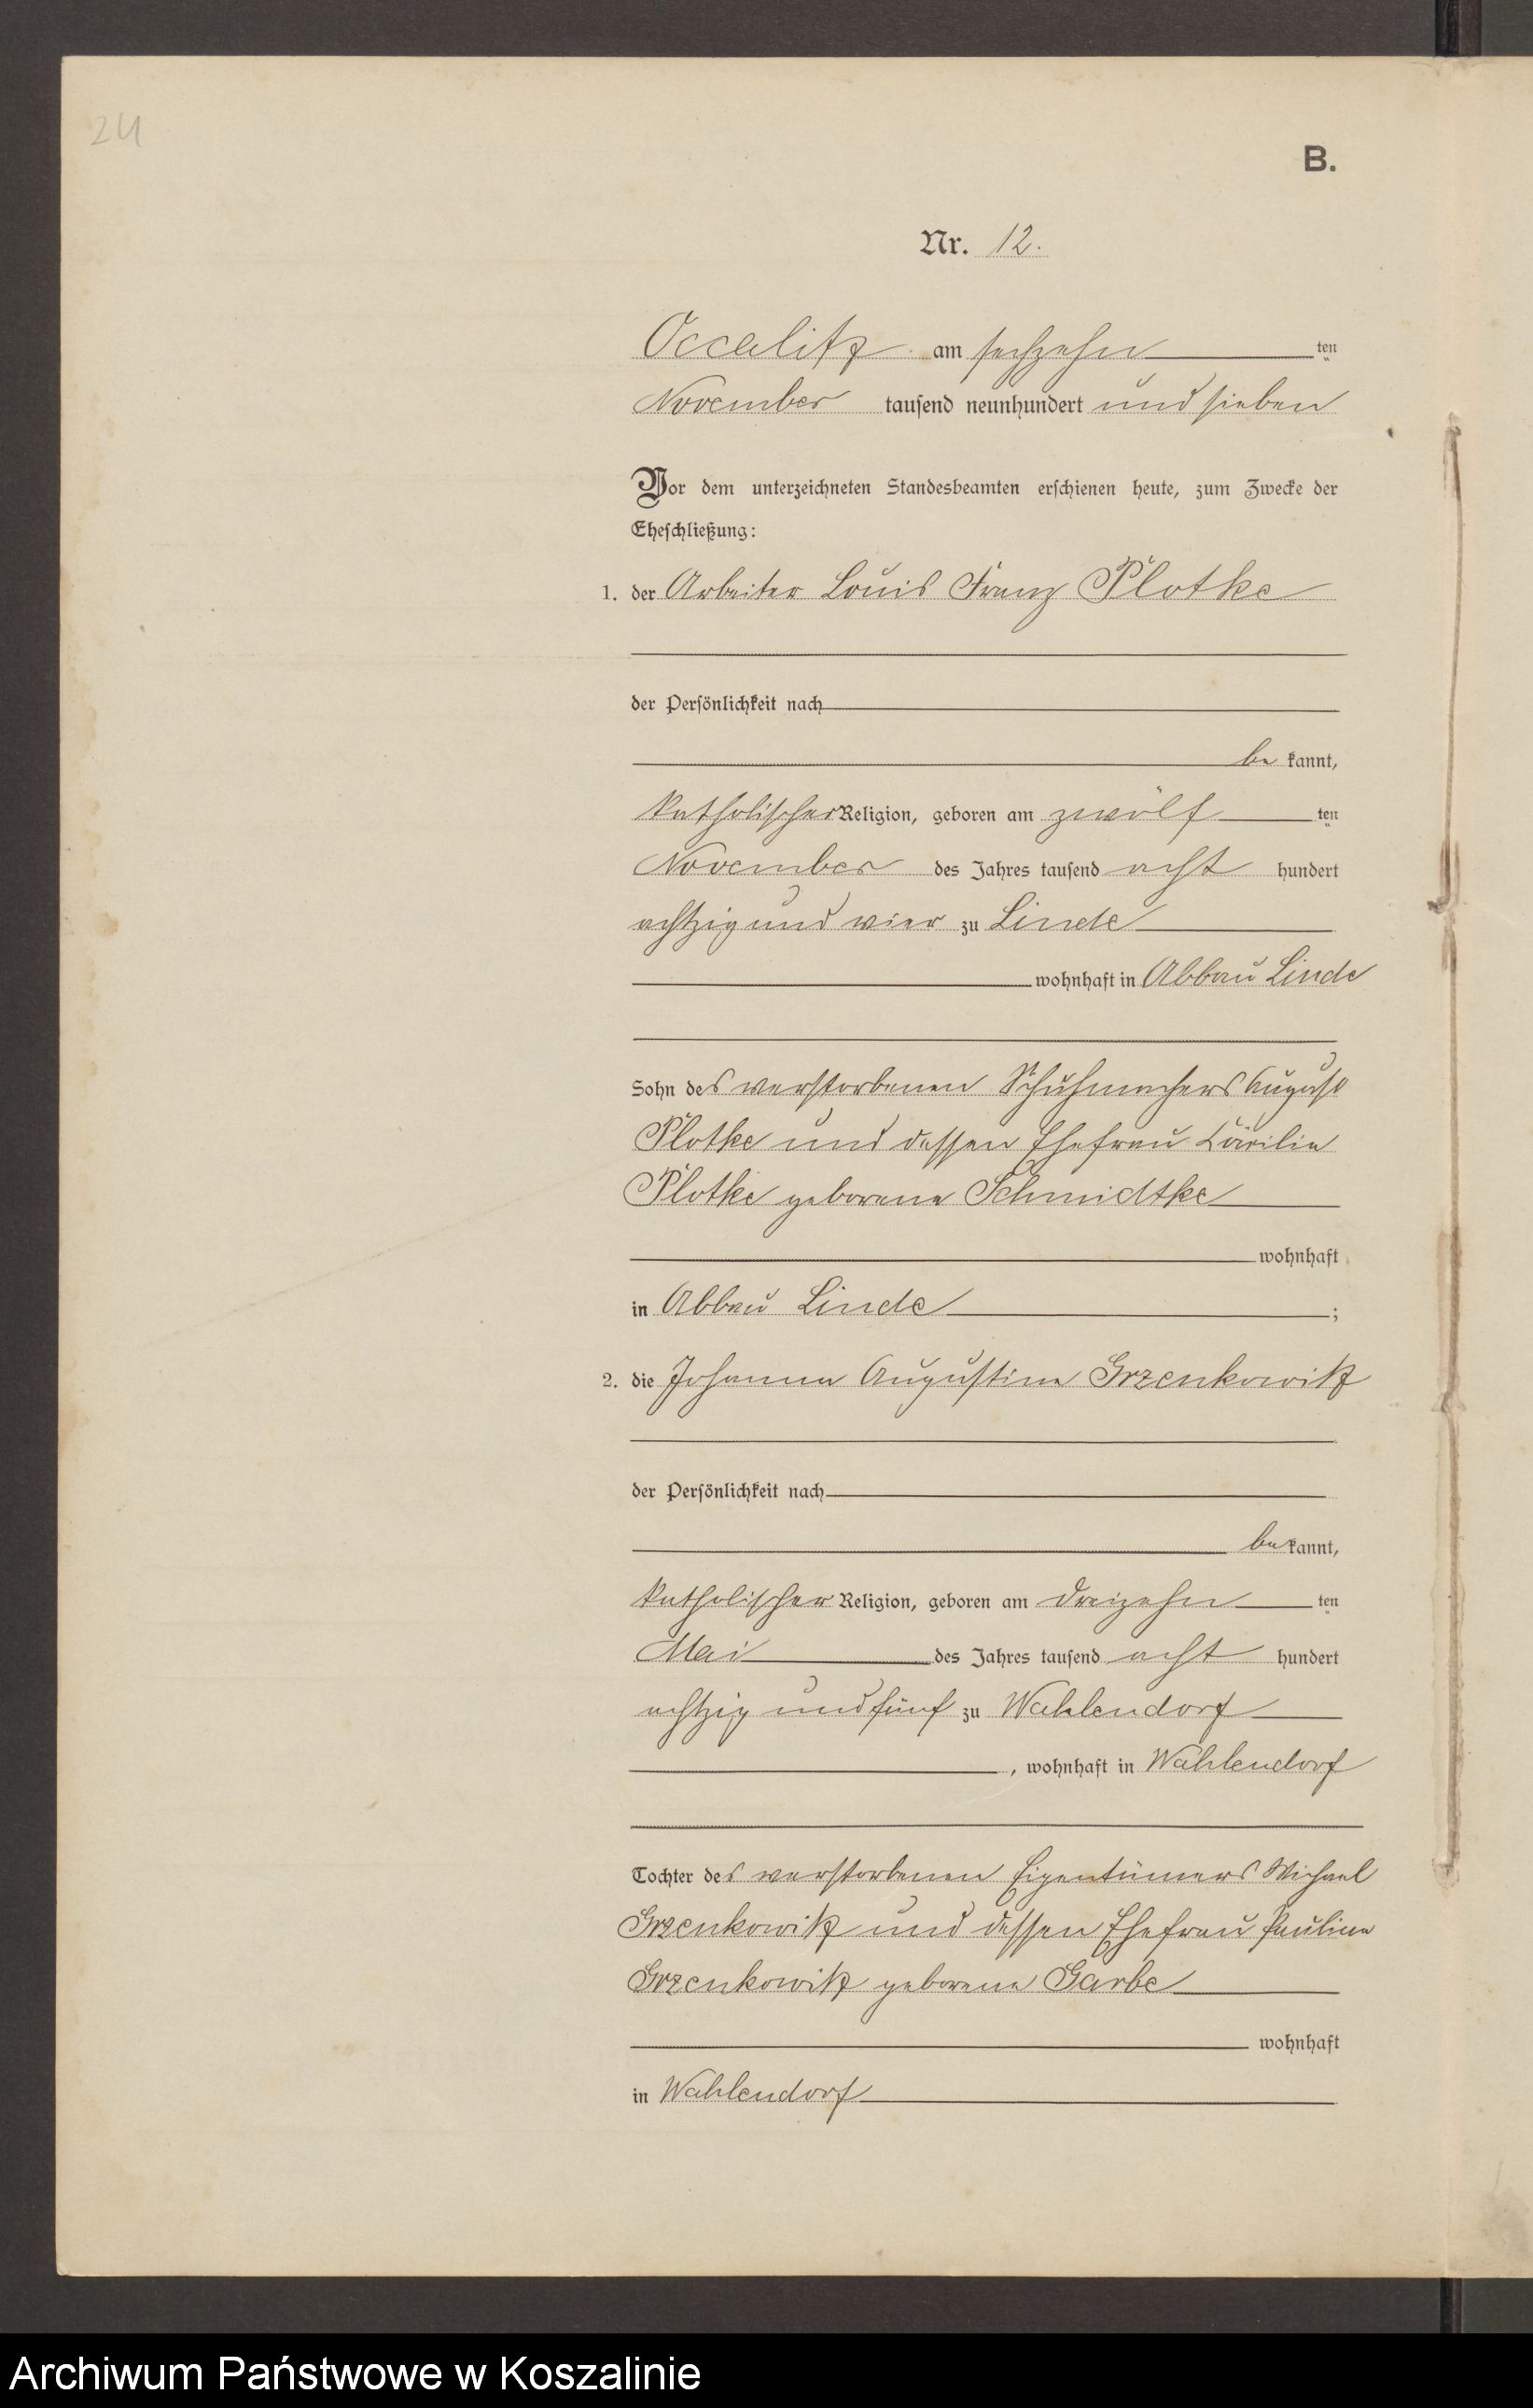 24
B.
Nr. 12.
Occalitz am sechzehn ten
November tausend neunhundert und sieben
Vor dem unterzeichneten Standesbeamten erschienen heute, zum Zwecke der
Eheschließung:
1. der Arbeiter Louis Franz Plotke
der Persönlichkeit nach
be kannt,
katholischer Religion, geboren am zwölf ten
November des Jahres tausend acht hundert
achtzig und vier zu Linde
wohnhaft in Abbau Linde
Sohn des verstorbenen Schuhmachers August
Plotke und dessen Ehefrau Cäcilie
Plotke geborene Schmidtke
wohnhaft
in Abbau Linde ;
2. die Johanna Augustine Grzenkowitz
der Persönlichkeit nach
be kannt,
katholischer Religion, geboren am dreizehn ten
Mai des Jahres tausend acht hundert
achtzig und fünf zu Wahlendorf
, wohnhaft in Wahlendorf
Tochter des verstorbenen Eigentümers Michael
Grzenkowitz und dessen Ehefrau Pauline
Grzenkowitz geborene Garbe
wohnhaft
in Wahlendorf
Archiwum Państwowe w Koszalinie